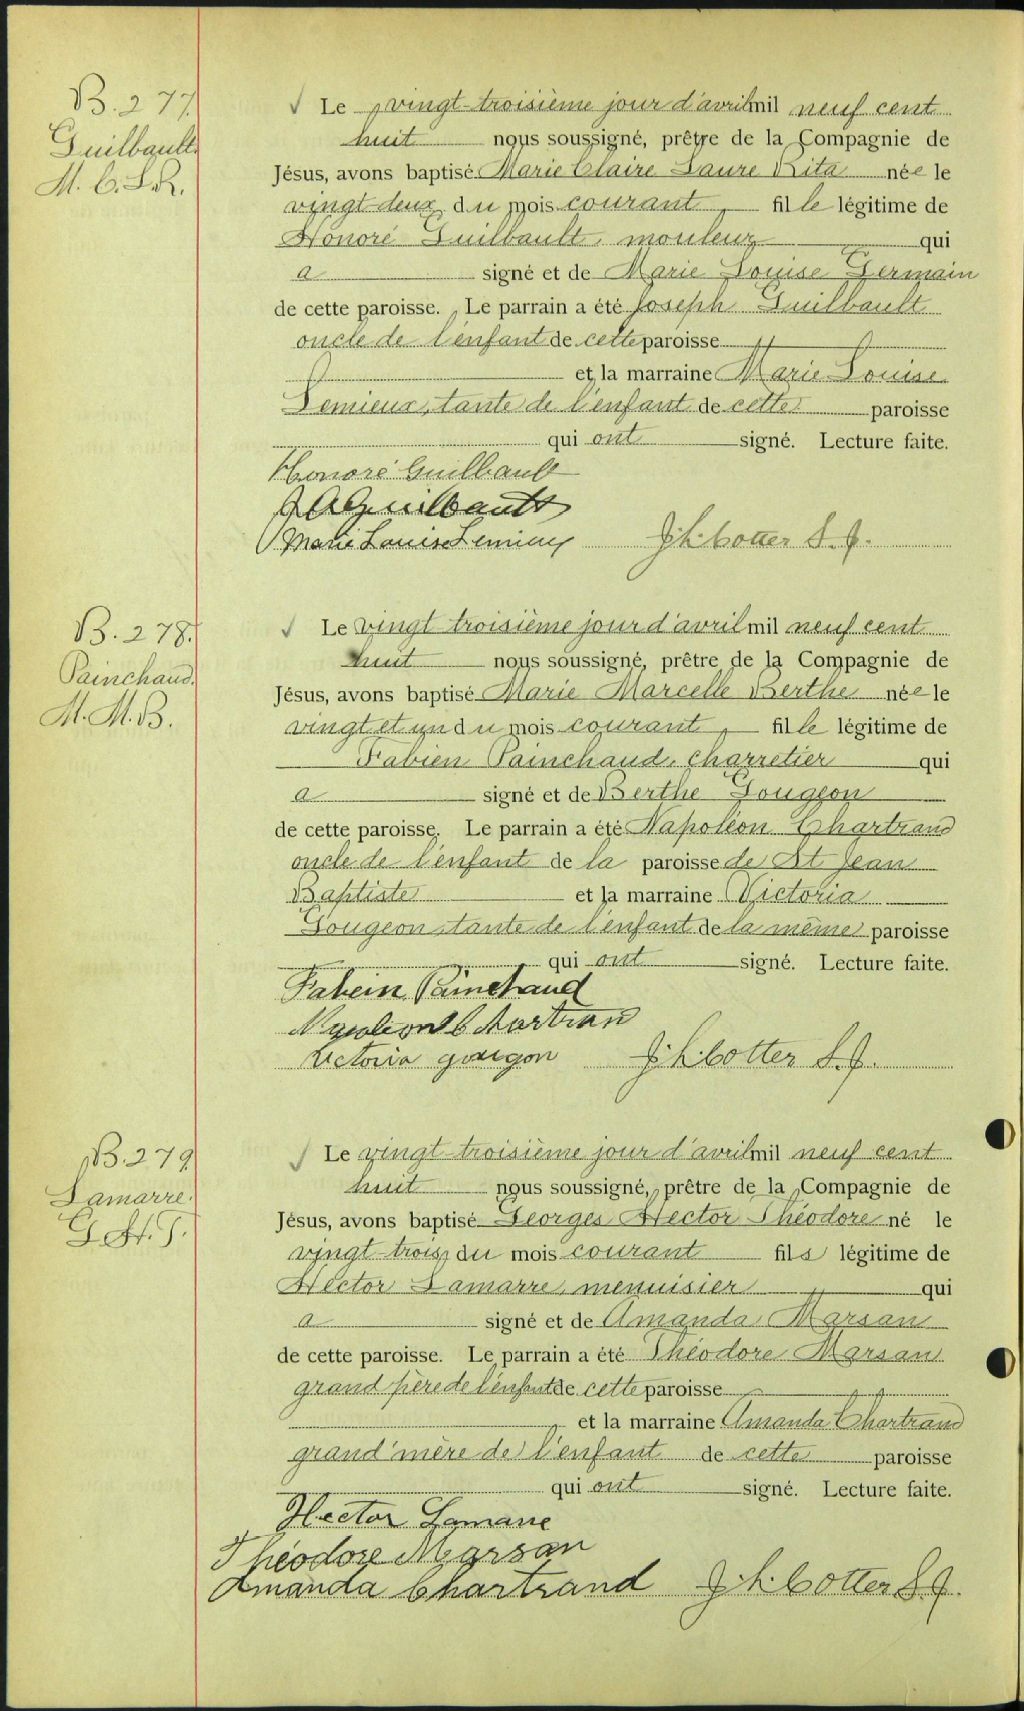 B. 277.
Guilbault.
M. C. L. R.
Le vingt-troisième jour d'avril mil neuf cent
huit nous soussigné, prêtre de la Compagnie de
Jésus, avons baptisé Marie Claire Laure Rita née le
vingt-deux du mois courant, fille légitime de
Honoré Guilbault, mouleur qui
a signé et de Marie Louise Germain
de cette paroisse. Le parrain a été Joseph Guilbault
oncle de l'enfant de cette paroisse
et la marraine Marie Louise
Lemieux, tante de l'enfant de cette paroisse
qui ont signé. Lecture faite.
Honoré Guilbault
J A Guilbault
Marie Louise Lemieux J. h. Cotter S. J.
B. 278.
Painchaud.
M. M. B.
Le vingt troisième jour d'avril mil neuf cent
huit nous soussigné, prêtre de la Compagnie de
Jésus, avons baptisé Marie Marcelle Berthe née le
vingt et un du mois courant, fille légitime de
Fabien Painchaud, charretier qui
a signé et de Berthe Gougeon
de cette paroisse. Le parrain a été Napoléon Chartrand
oncle de l'enfant de la paroisse de St Jean
Baptiste et la marraine Victoria
Gougeon, tante de l'enfant de la même paroisse
qui ont signé. Lecture faite.
Fabein Painchaud
Napoleon Chartran
Victoria gougon J. h. Cotter S. J.
B. 279.
Lamarre.
G. H. T.
Le vingt-troisième jour d'avril mil neuf cent
huit nous soussigné, prêtre de la Compagnie de
Jésus, avons baptisé Georges Hector Théodore né le
vingt-trois du mois courant fils légitime de
Hector Lamarre, menuisier qui
a signé et de Amanda Marsan
de cette paroisse. Le parrain a été Théodore Marsan
grand père de l'enfant de cette paroisse
et la marraine Amanda Chartrand
grand'mère de l'enfant de cette paroisse
qui ont signé. Lecture faite.
Hector Lamarre
Théodore Marsan
Amanda Chartrand J. h. Cotter S. J.